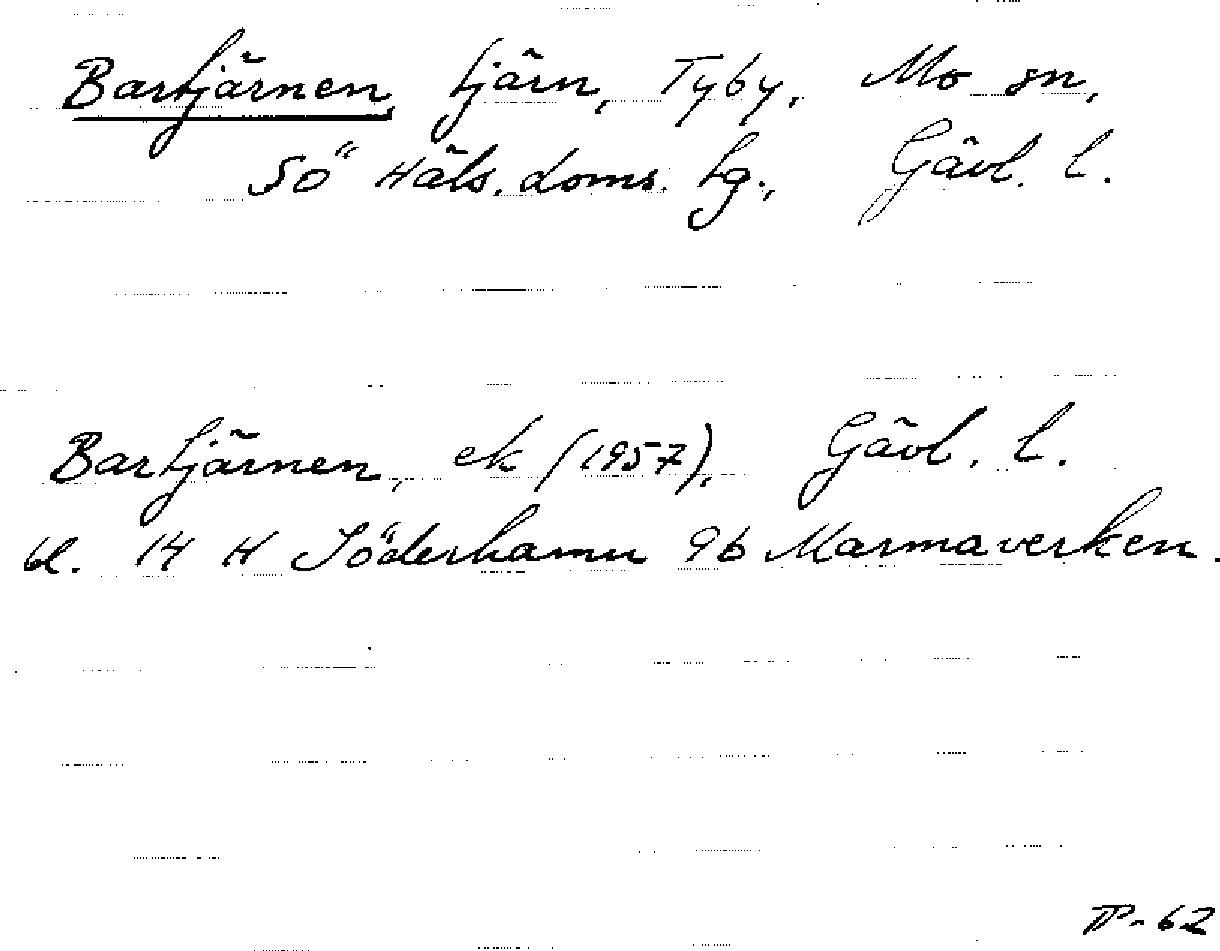 Bartjärnen, tjärn, Tyby, Mo sn,
Sö Häls. doms. tg., Gävl. l.
Bartjärnen, ek (1957), Gävl. l.
bl. 14 H Söderhamn 9b Marmaverken.
P-62